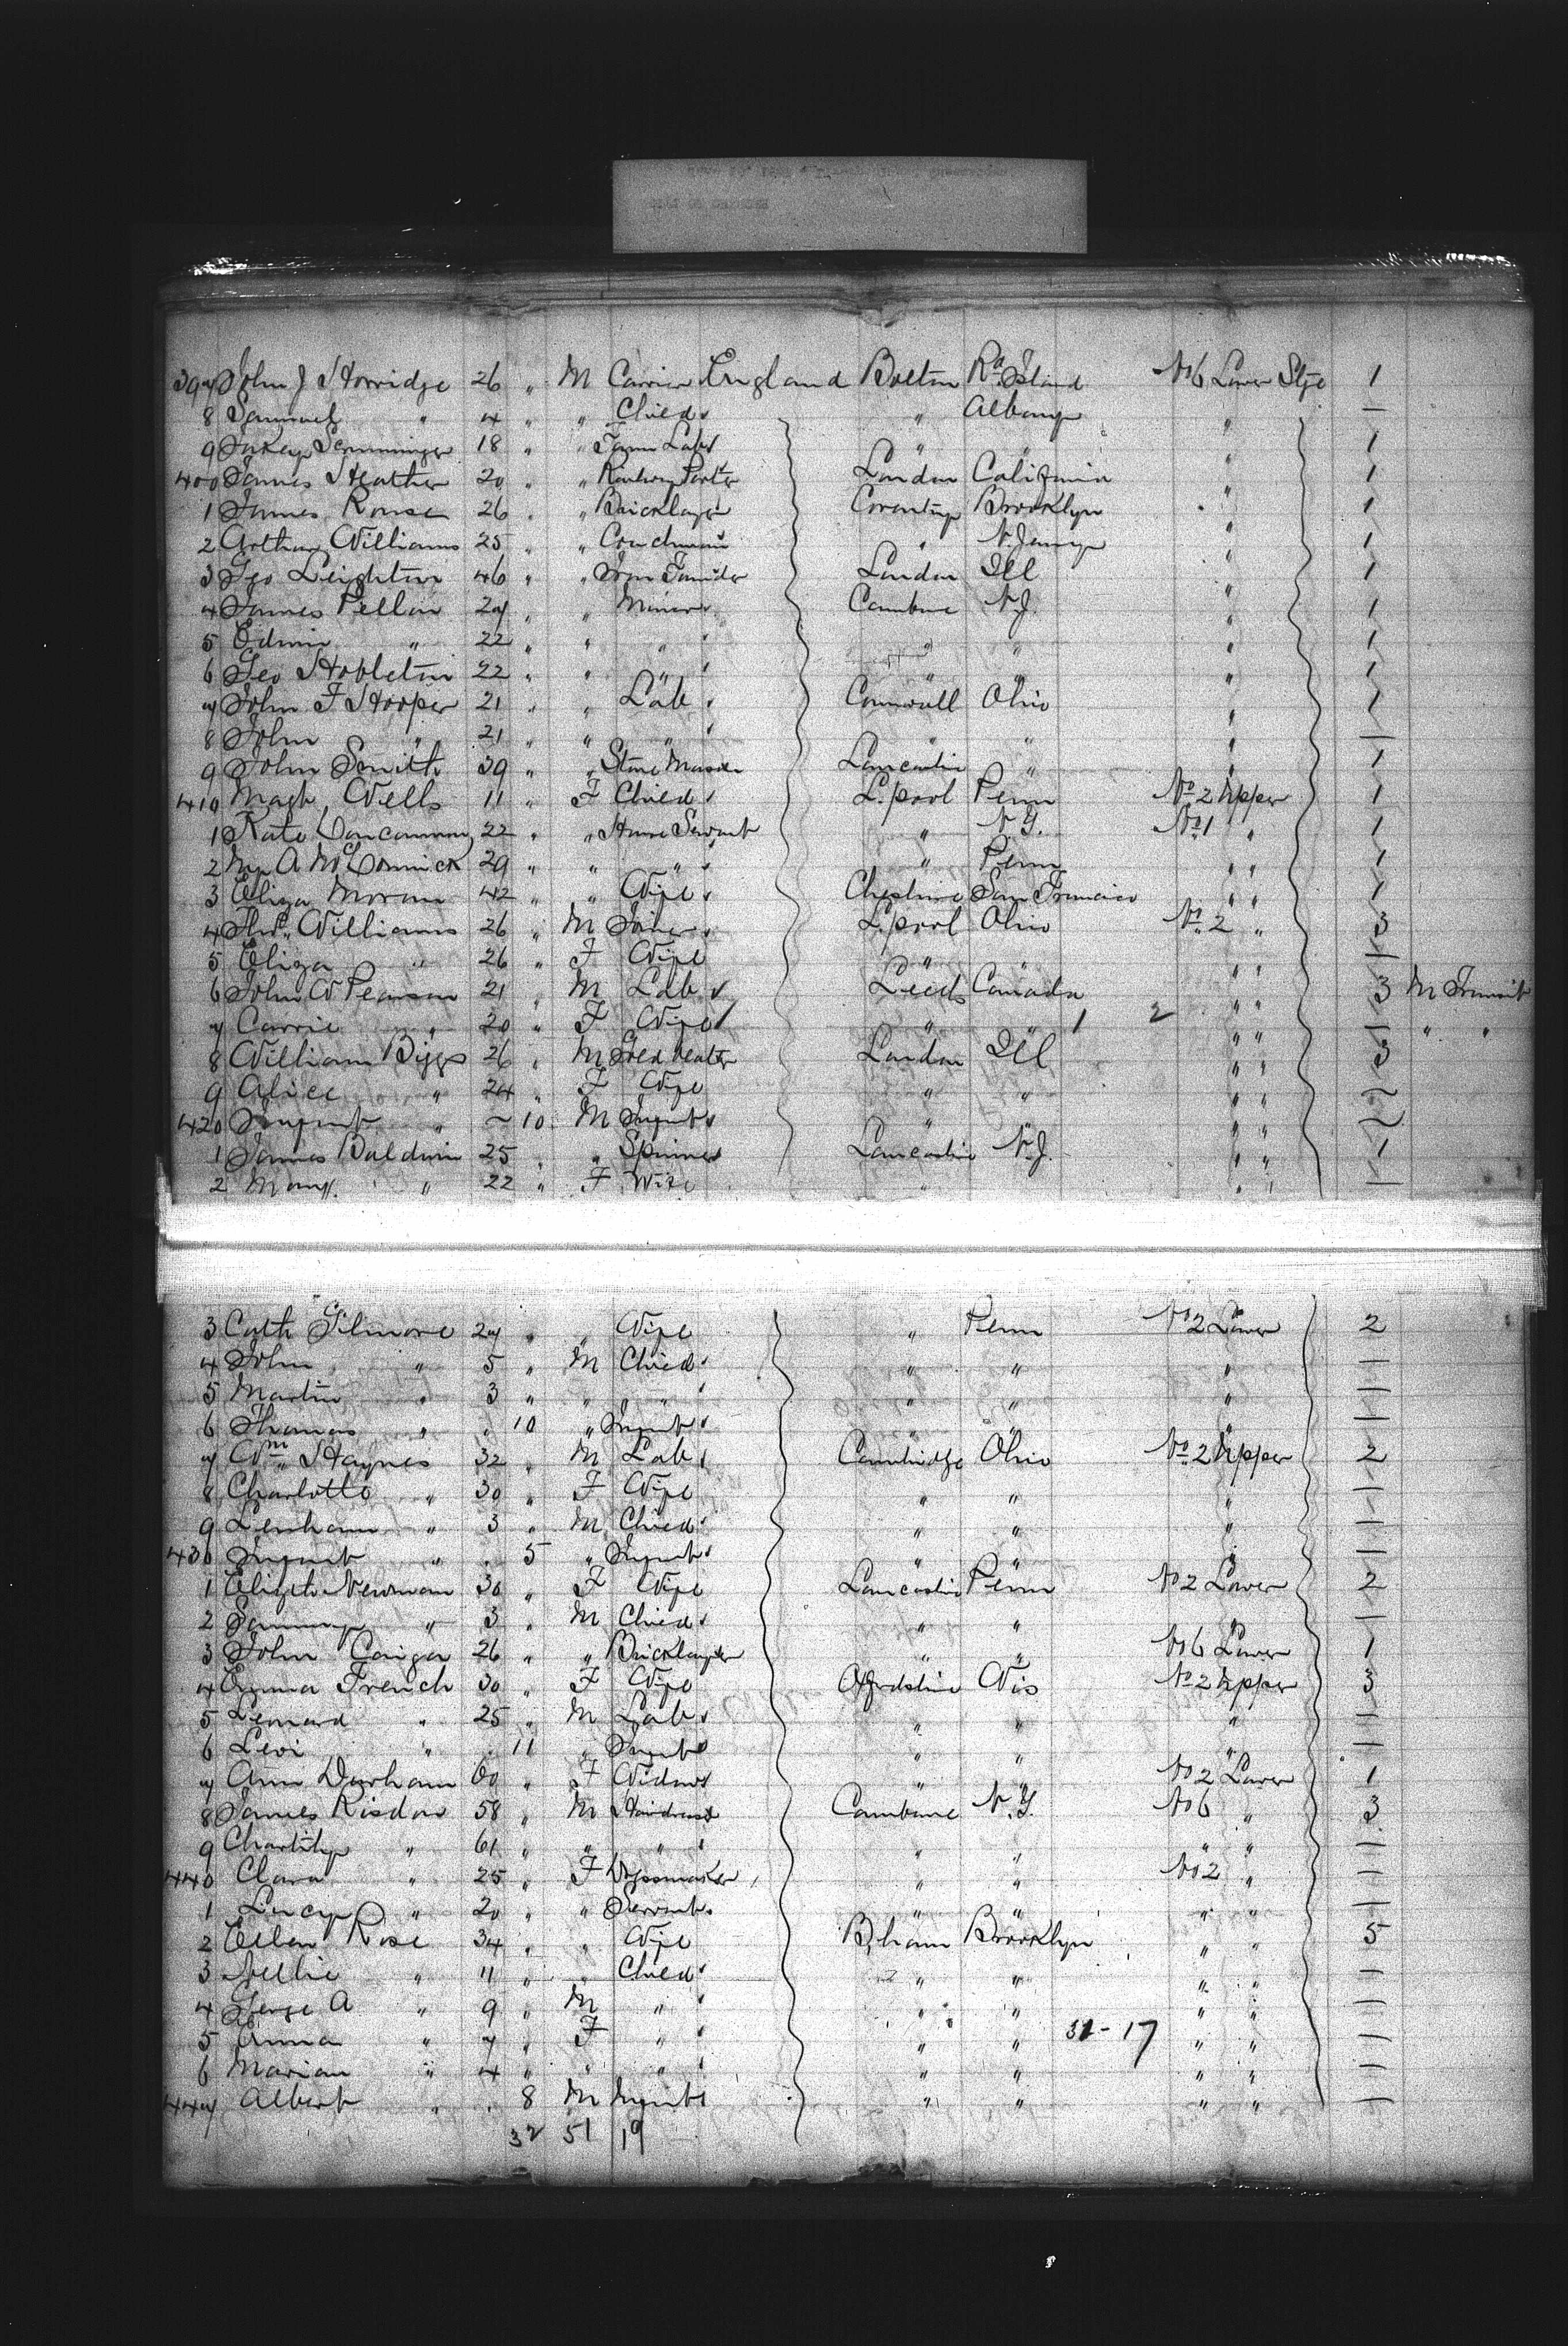 397 John J Horridge 26 " M Carrier England Bolton Rd. Island No 6 Lower Stge 1
8 Samuel " 4 " " Child " Albany " —
9 18 " " Farm Lab " " " 1
400 James Heather 20 " " Railway Porter London California " 1
1 James Rouse 26 " " Bricklayer Coventry Brooklyn " 1
2 Arthur Williams 25 " " Coachman " N. Jersey " 1
3 Geo Leighton 46 " " Iron Founder London Ill " 1
4 James Pellow 27 " " Miner Cambune N.J. " 1
5 Edwin " 22 " " " " " " 1
6 Geo Hobleton 22 " " " " " " 1
7 John F Hooper 21 " " Lab Cornwall Ohio " 1
8 John " 21 " " " " " " —
9 John Smith 39 " " Stone Mason Lancashire " " 1
410 Magt. Wells 11 " F Child L.pool Penn No 2 Upper 1
1 Kate Concannon 22 " " House Servant " N.Y. No 1 " 1
2 My A McCormick 29 " " " " Penn " " 1
3 Eliza Moran 42 " " Wife Cheshire San Francisco " " 1
4 Thos. Williams 26 " M Joiner L.pool Ohio No 2 " 3
5 Eliza " 26 " F Wife " " " " —
6 John W Pearson 21 " M Lab Leeds Canada " " 3 In Transit
7 Carrie " 20 " F Wife " " 1 2 " " — " "
8 William Biggs 26 " M London Ill " " 3
9 Alice " 24 " F Wife " " " " —
420 Infant " — 10 M Infant " " " " —
1 James Baldwin 25 " " Spinner Lancashire N.J. " " 1
2 Mary " 22 " F Wife " " —
3 Cath Gilmore 27 " " Wife " Penn No 2 Lower 2
4 John " 5 " M Child " " " —
5 Martin " 3 " " " " " " —
6 Thomas " " 10 " Infant " " " —
7 Wm Haynes 32 " M Lab Cambridge Ohio No 2 Upper 2
8 Charlotte " 30 " F Wife " " " —
9 " 3 " M Child " " " —
430 Infant " " 5 " Infant " " " —
1 Elizth Newman 30 " F Wife Lancashire Penn No 2 Lower 2
2 Sammy " 3 " M Child " " " —
3 John 26 " " Bricklayer " " No 6 Lower 1
4 Emma French 30 " F Wife Oxfordshire Wis No 2 Upper 3
5 Lenard " 25 " M Lab " " " —
6 Levi " 11 " Infant " " " —
7 Ann Durham 60 " F Widow " " No 2 Lower 1
8 James Risdon 58 " M Cambune N.Y. No 6 " 3
9 Charlity " 61 " " " " " " " —
440 Clara " 25 " F Dressmaker " " No 2 " —
1 Lucy " 20 " " Servant " " " " —
2 Ellen Rose 34 " " Wife B.ham Brooklyn " " 5
3 Nellie " 11 " " Child " " " " —
4 George A " 9 " M " " " " " —
5 Anna " 7 " F " " " 31-17 " " —
6 Marian " 4 " " " " " " " —
447 Albert " " 8 M Infant " " " " —
32 51 19